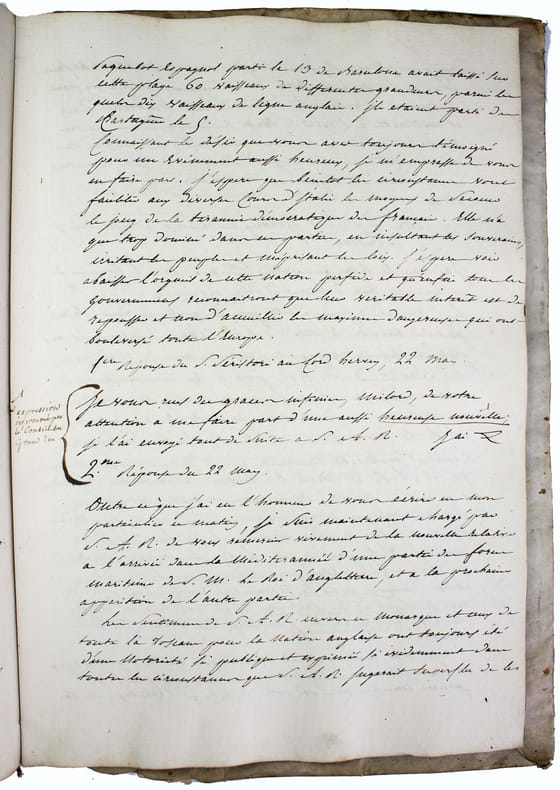 Paquebot Espagnol parti le 13 de Barcelone avait laissé sur
cette plage 60 vaisseaux de differente grandeur, parmi les
quels dix vaisseaux de ligne anglais. Ils etaient parti de
Cartagène le 5.
Connaissant le désir que vous avez toujours témoigné
pour un événement aussi heureux, je m'empresse de vous
en faire part. J'espere que bientot les circonstances vont
faciliter aux diverses Cours d'Italie les moyens de secouer
le joug de la tirannie démocratique des français. Elle n'a
que trop dominé dans ces parties, en insultant les Souverains,
irritant les peuples et méprisant les loix. J'espere voir
abaisser l'orgueil de cette nation perfide et qu'enfin tous les
Gouvernemens reconnaitront que leur veritable interet est de
repousser et non d'accueillir les maximes dangereuses qui ont
boulversé toute l'Europe.
1ere Réponse du S. Seristori au Lord Hervey, 22 May.
Je vous rens des graces infinies, Milord, de votre
attention a me faire part d'une aussi heureuse nouvelle;
je l'ai envoyé tout de suite a S. A. R. J'ai &
expression
du Conseil du
Grand Duc
2.me Réponse du 22 May.
Outre ce que j'ai eu l'honneur de vous écrire en mon
particulier ce matin, je suis maintenant chargé par
S. A. R. de vous remercier vivement de la nouvelle relative
a l'arrivée dans la Méditerannée d'une partie des forces
maritimes de S. M. le Roi d'angleterre, et a la prochaine
apparition de l'autre partie.
Les Sentimens de S. A. R envers ce Monarque et ceux de
toute la Toscane pour la Nation anglaise ont toujours été
d'une Notoriété si publique et exprimés si évidemment dans
toutes les circonstances que S. A. R. jugerait superflu de les